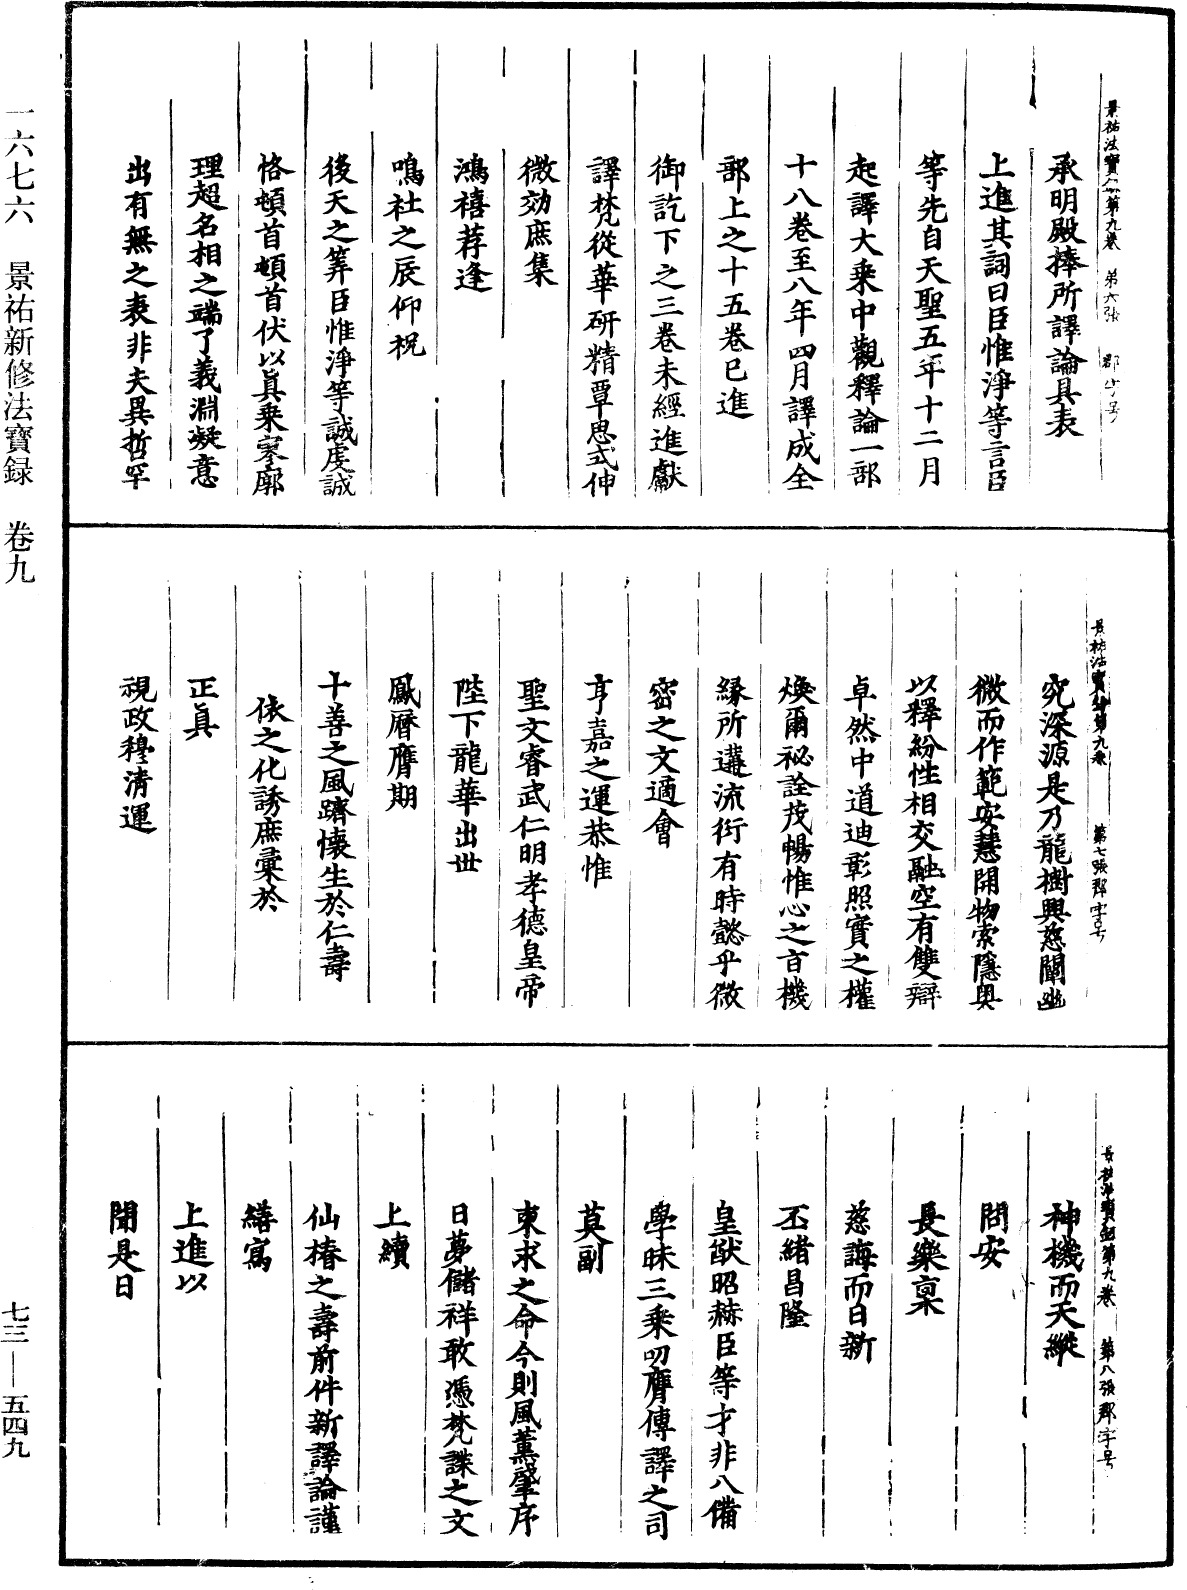 景祐法寶錄第九卷　第六張　郡字号
承明殿捧所譯論具表
上進其詞曰臣惟淨等言臣
等先自天聖五年十二月
起譯大乘中觀釋論一部
十八卷至八年四月譯成全
部上之十五卷已進
御訖下之三卷未經進獻
譯梵從華研精覃思式伸
微効庶集
鴻禧荐逢
鳴社之辰仰祝
後天之筭臣惟淨等誠虔誠
恪頓首頓首伏以真乘寥廓
理超名相之端了義淵凝意
出有無之表非夫異哲罕
景祐法寶錄第九卷　第七張郡字号
究深源是乃龍樹興慈闡幽
微而作範安慧開物索隱奧
以釋紛性相交融空有雙辯
卓然中道迪彰照實之權
煥爾祕詮茂暢惟心之旨機
緣所遘流衍有時懿乎微
密之文適會
亨嘉之運恭惟
聖文睿武仁明孝德皇帝
陛下龍華出世
鳳曆膺期
十善之風躋懷生於仁壽
依之化誘庶彙於
正真
視政穆清運
景祐法寶錄第九卷　第八張郡字号
神機而天縱
問安
長樂稟
慈誨而日新
丕緒昌隆
皇猷昭赫臣等才非八備
學昧三乘叨膺傳譯之司
莫副
東求之命今則風薰肇序
日夢儲祥敢憑梵誄之文
上續
仙椿之壽前件新譯論謹
繕寫
上進以
聞是日
一六七六　景祐新修法寶録　卷九
七三—五四九